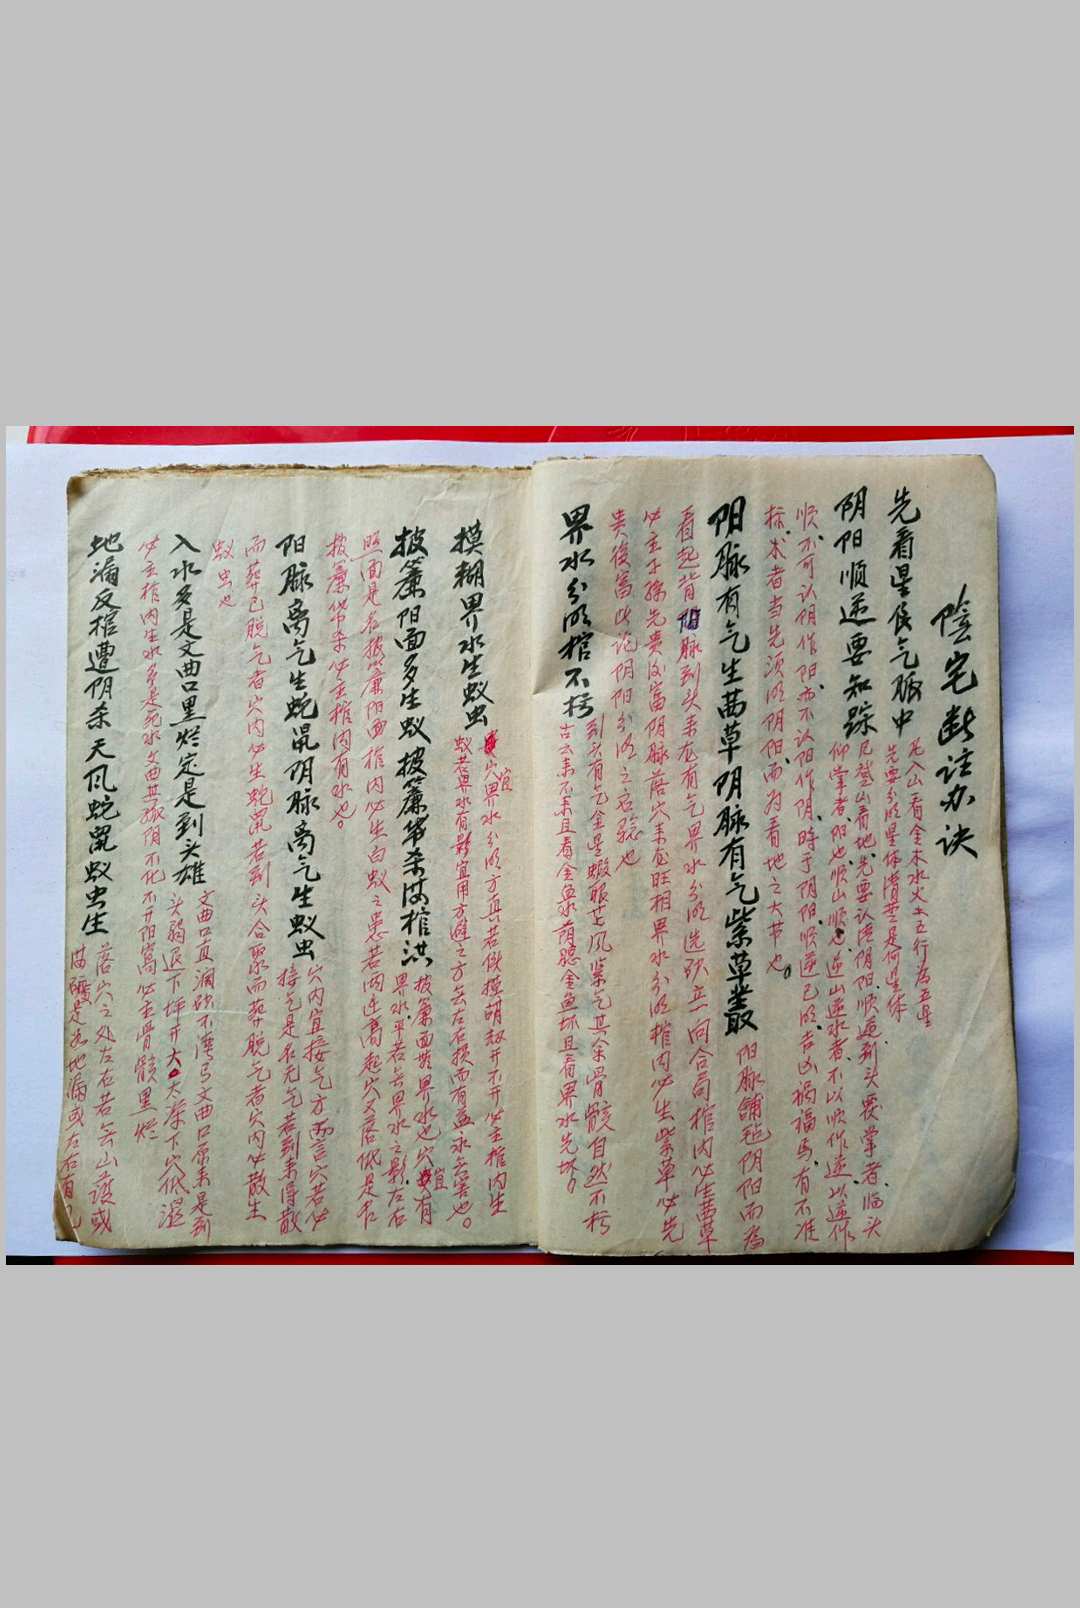 陰宅断註办诀
先看星辰气脉中
凡入山看金木水火土五行為五星
先要分明星体清楚是何星体
阴阳顺逆要知踪
凡登山看地先要认清阴阳顺逆到头覆掌者临头
仰掌者阳也顺山顺也逆山逆水者不以顺作逆以逆作
顺不可认阴作阳亦不认阳作阴時于阴阳顺逆已明吉凶祸福焉有不准
标本者当先须明阴阳而为看地之大节也。
阳脉有气生茜草阴脉有气紫草叢
阳脉铺毡阴阳而為
看起背阴脉到头来龙有气界水分明选砂立向合局棺内必生茜草
必主子孫先贵後富阴脉落穴来龙旺相界水分明棺内必生紫草必先
贵後富此论阴阳分明之应验也
界水分明棺不朽
到头有气全是蝦眼生风紫气其余骨骸自然不朽
古云来不来且看金鱼水荫腮金鱼坏且看界水先坏。
摸糊界水生蚁虫
穴宜界水分明方真若似摸胡劫开不开必主棺内生
蚁若界水有影宜用方避之方無左右损而有益永無害也。
披簾阳面多生蚁披簾带杀没棺洪
披簾面带界水也穴宜有
界水平若無界水之影左右
照面是名披簾阳面棺内必生白蚁之患若两边高起穴又落低是名
披簾带杀必主棺内有水也。
阳脉离气生蛇鼠阴脉离气生蚁虫
穴内宜接气方而言穴若必
接气是名无气若到来得散
而葬已脱气者穴内必生蛇鼠若到头合聚而葬脱气者穴内必散生
蚁虫也
入水多是文曲口里烂定是到头雄
文曲口直润砂不湾弓文曲口原来是到
头弱退下坪开大太深下穴低湿
必主棺内生水多是死水文曲其振阴不化不开阳窝必主骨骸里烂
地漏反棺遭阴杀天风蛇鼠蚁虫生
落穴之处左右若無山護或
凿砸是為地漏或左右有凹